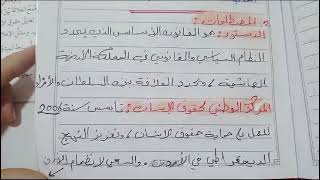 * المصطلحات:
الدستور: هو القانون الأساسي الذي يحدد
النظام السياسي والقانوني في المملكة الأردنية
الهاشمية، ويحدد العلاقة بين السلطات والأفراد
المركز الوطني لحقوق الإنسان: تأسس سنة 2006
للعمل في حماية حقوق الإنسان، وتعزيز النهج
الديمقراطي في الأردن، والسعي لانضمام الأردن